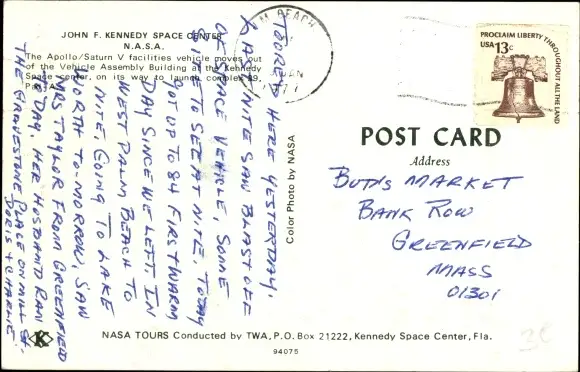 JOHN F. KENNEDY SPACE CENTER
N.A.S.A.
The Apollo/Saturn V facilities vehicle moves out
of the Vehicle Assembly Building at the Kennedy
Space center, on its way to launch complex 39,
TOOREY HERE YESTERDAY.
NITE SAW BLAST OFF
OF SPACE VEHICLE, SOME
SITE TO SEE AT NITE. TODAY
GOT UP TO 84 FIRST WARM
DAY SINCE WE LEFT. IN
WEST PALM BEACH TO
NITE GOING TO LAKE
WORTH TO-MORROW, SAW
MRS TAYLOR FROM GREENFIELD
TO DAY. HER HUSBAND RAN
THE GRAVESTONE PLACE ON MILL ST.
DORIS & CHARLIE
Color Photo by NASA
BEACH
PROCLAIM LIBERTY THROUGHOUT ALL THE LAND
USA 13c
POST CARD
Address
BUTH'S MARKET
BANK ROW
GREENFIELD
MASS
01301
K
NASA TOURS Conducted by TWA, P.O. Box 21222, Kennedy Space Center, Fla.
94075